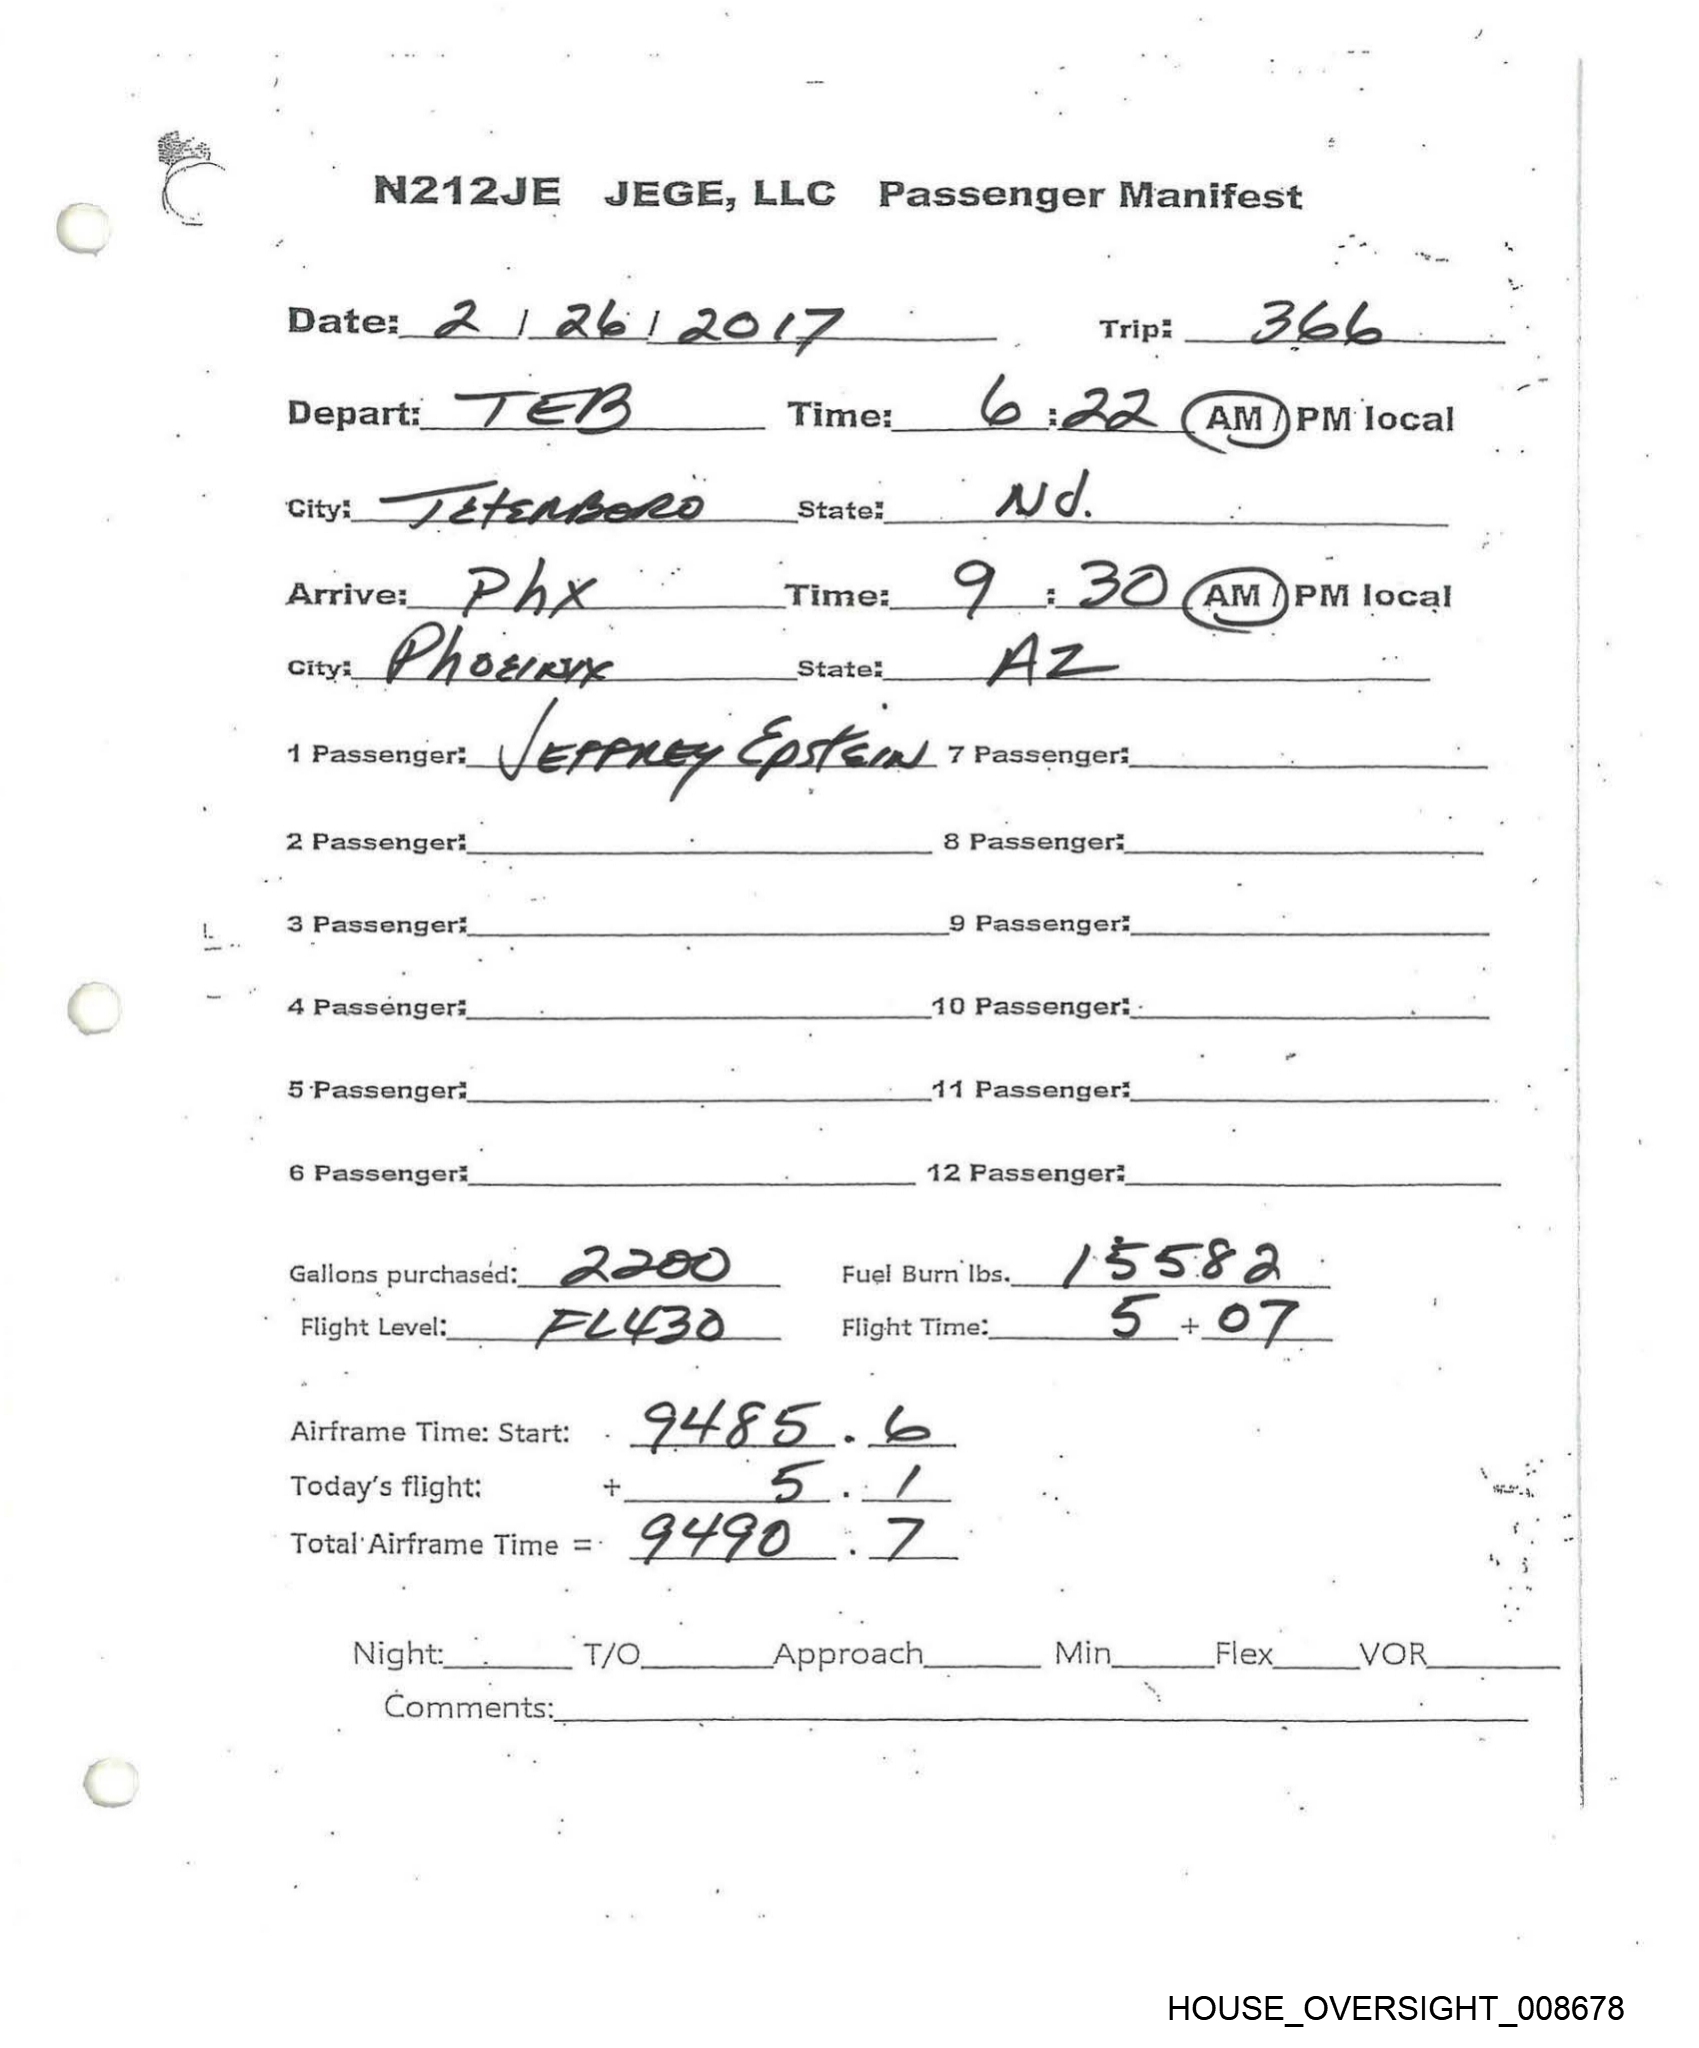 N212JE JEGE, LLC Passenger Manifest
Date: 2 / 26 / 2017 Trip: 366
Depart: TEB Time: 6 : 22 AM / PM local
City: TETERBORO State: NJ.
Arrive: Phx Time: 9 : 30 AM / PM local
City: Phoeinix State: AZ
1 Passenger: JEFFREY Epstein 7 Passenger:
2 Passenger: 8 Passenger:
3 Passenger: 9 Passenger:
4 Passenger: 10 Passenger:
5 Passenger: 11 Passenger:
6 Passenger: 12 Passenger:
Gallons purchased: 2200 Fuel Burn lbs. 15582
Flight Level: FL430 Flight Time: 5 + 07
Airframe Time: Start: 9485 . 6
Today's flight: + 5 . 1
Total Airframe Time = 9490 . 7
Night: T/O Approach Min Flex VOR
Comments:
HOUSE_OVERSIGHT_008678